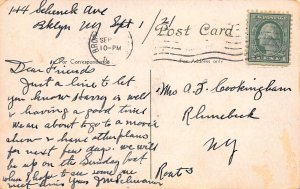 144 Schenck Ave
Bklyn NY Sept 1
SEP
10-PM
Post Card
For Correspondence
Address Only
Dear Friends
Just a line to let
you know Harry is well
& having a good time
we are about to go to a movie
show & have other plans
for next few days. We will
be up on the Sunday boat
when I hope to see some one
meet
Mrs A. J. Cookingham
Rhinebeck
NY